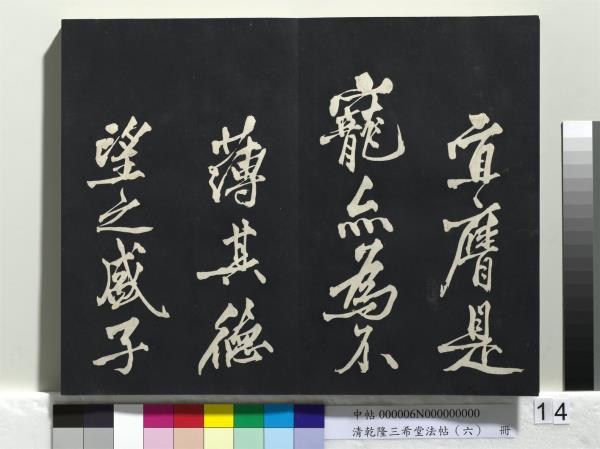 宜膺是
寵亦為不
薄其德
望之盛子
14
中帖 000006N000000000
清乾隆三希堂法帖（六） 冊